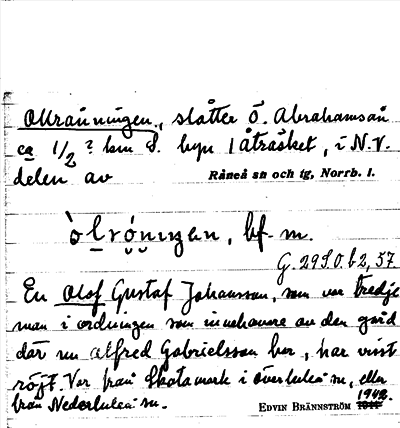 Ollröningen, slåtter Ö. Abrahamsån
ca 1/2 ? km S. byn Låträsket, i N.V.
delen av Råneå sn och tg, Norrb. l.
ò̀lrónıŋen, bf. m.
G. 29 S.O. b 2, 57.
En Olof Gustaf Johansson, som var tredje
man i ordningen som innehavare av den gård
där nu Alfred Gabrielsson bor, har visst
röjt. Var från Skatamark i Överluleå sn, eller
från Nederluleå sn.
EDVIN BRÄNNSTRÖM 1942